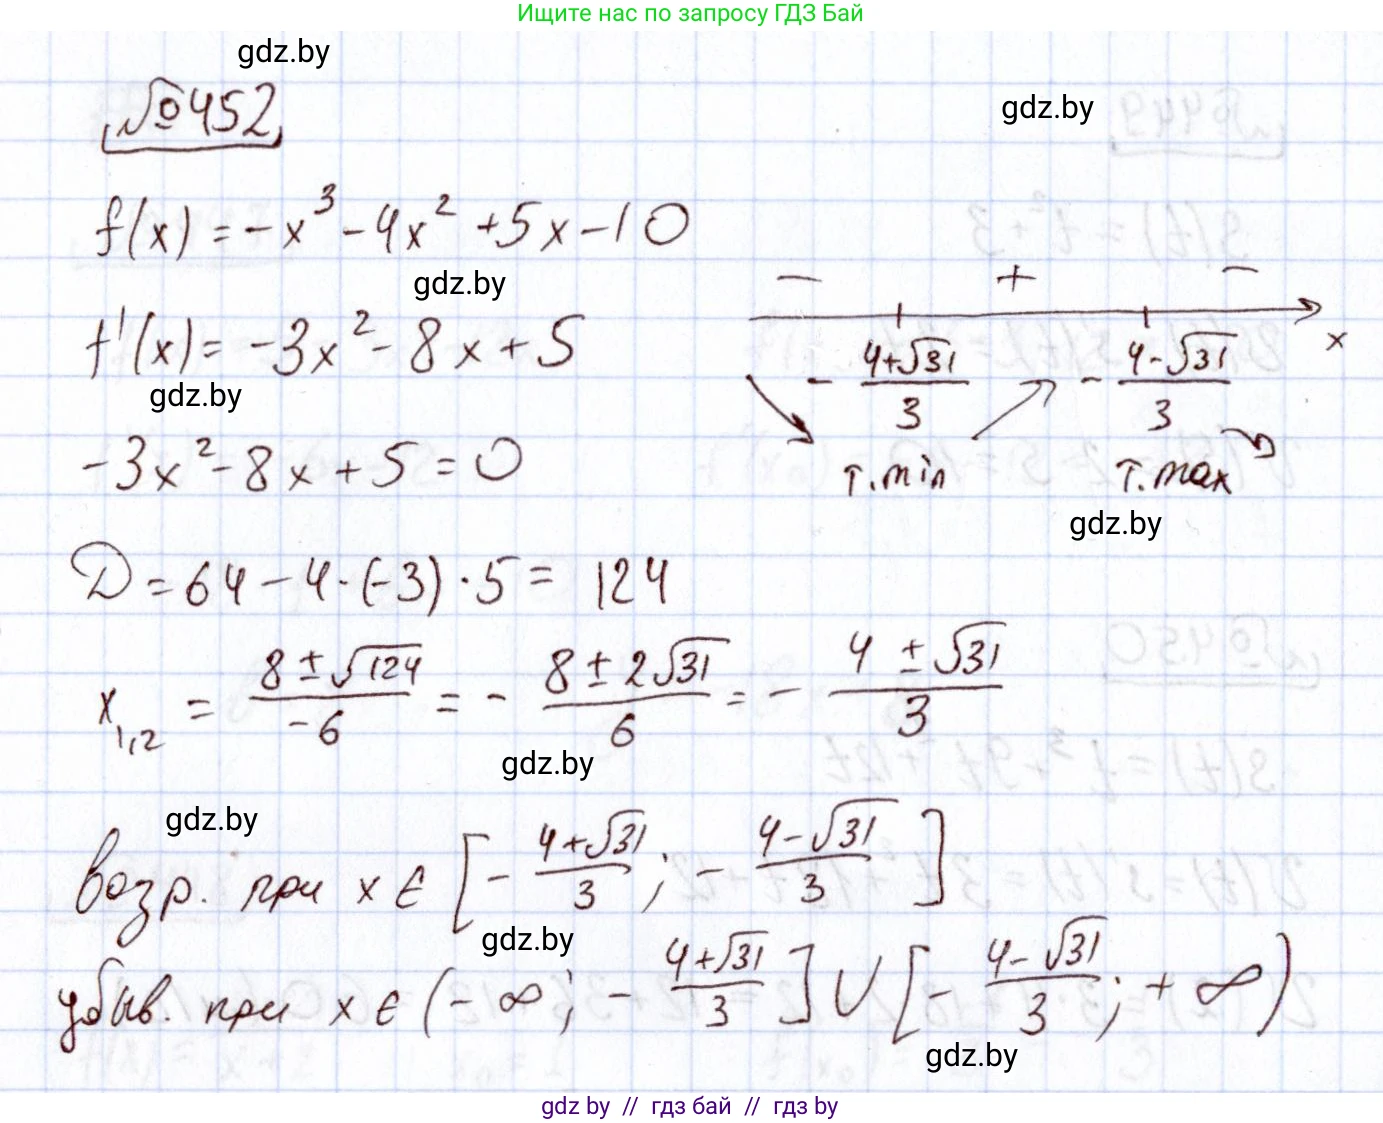 Ищите нас по запросу ГДЗ Бай
gdz.by
№452
gdz.by
f(x) = -x³ - 4x² + 5x - 10
gdz.by
f'(x) = -3x² - 8x + 5
gdz.by
- + -
-(4+√31)/3 -(4-√31)/3 x
т.min т.max
gdz.by
-3x² - 8x + 5 = 0
D = 64 - 4·(-3)·5 = 124
x₁,₂ = (8 ± √124)/(-6) = -(8 ± 2√31)/6 = -(4 ± √31)/3
gdz.by
gdz.by
возр. при x ∈ [-(4+√31)/3; -(4-√31)/3]
gdz.by
убыв. при x ∈ (-∞; -(4+√31)/3] ∪ [-(4-√31)/3; +∞)
gdz.by
gdz by // гдз бай // гдз by